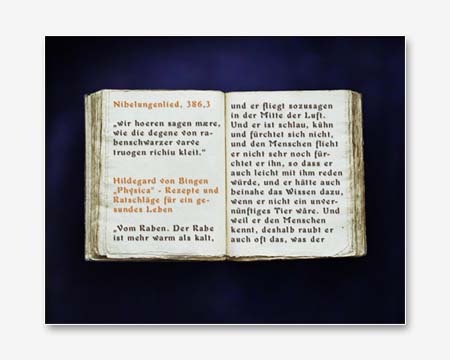 Nibelungenlied, 386,3
„wir hoeren sagen mære,
wie die degene von ra-
benschwarzer varve
truogen richiu kleit.“
Hildegard von Bingen
„Physica“ - Rezepte und
Ratschläge für ein ge-
sundes Leben
„Vom Raben. Der Rabe
ist mehr warm als kalt,
und er fliegt sozusagen
in der Mitte der Luft.
Und er ist schlau, kühn
und fürchtet sich nicht,
und den Menschen flieht
er nicht sehr noch für-
chtet er ihn, so dass er
auch leicht mit ihm reden
würde, und er hätte auch
beinahe das Wissen dazu,
wenn er nicht ein unver-
nünftiges Tier wäre. Und
weil er den Menschen
kennt, deshalb raubt er
auch oft das, was der